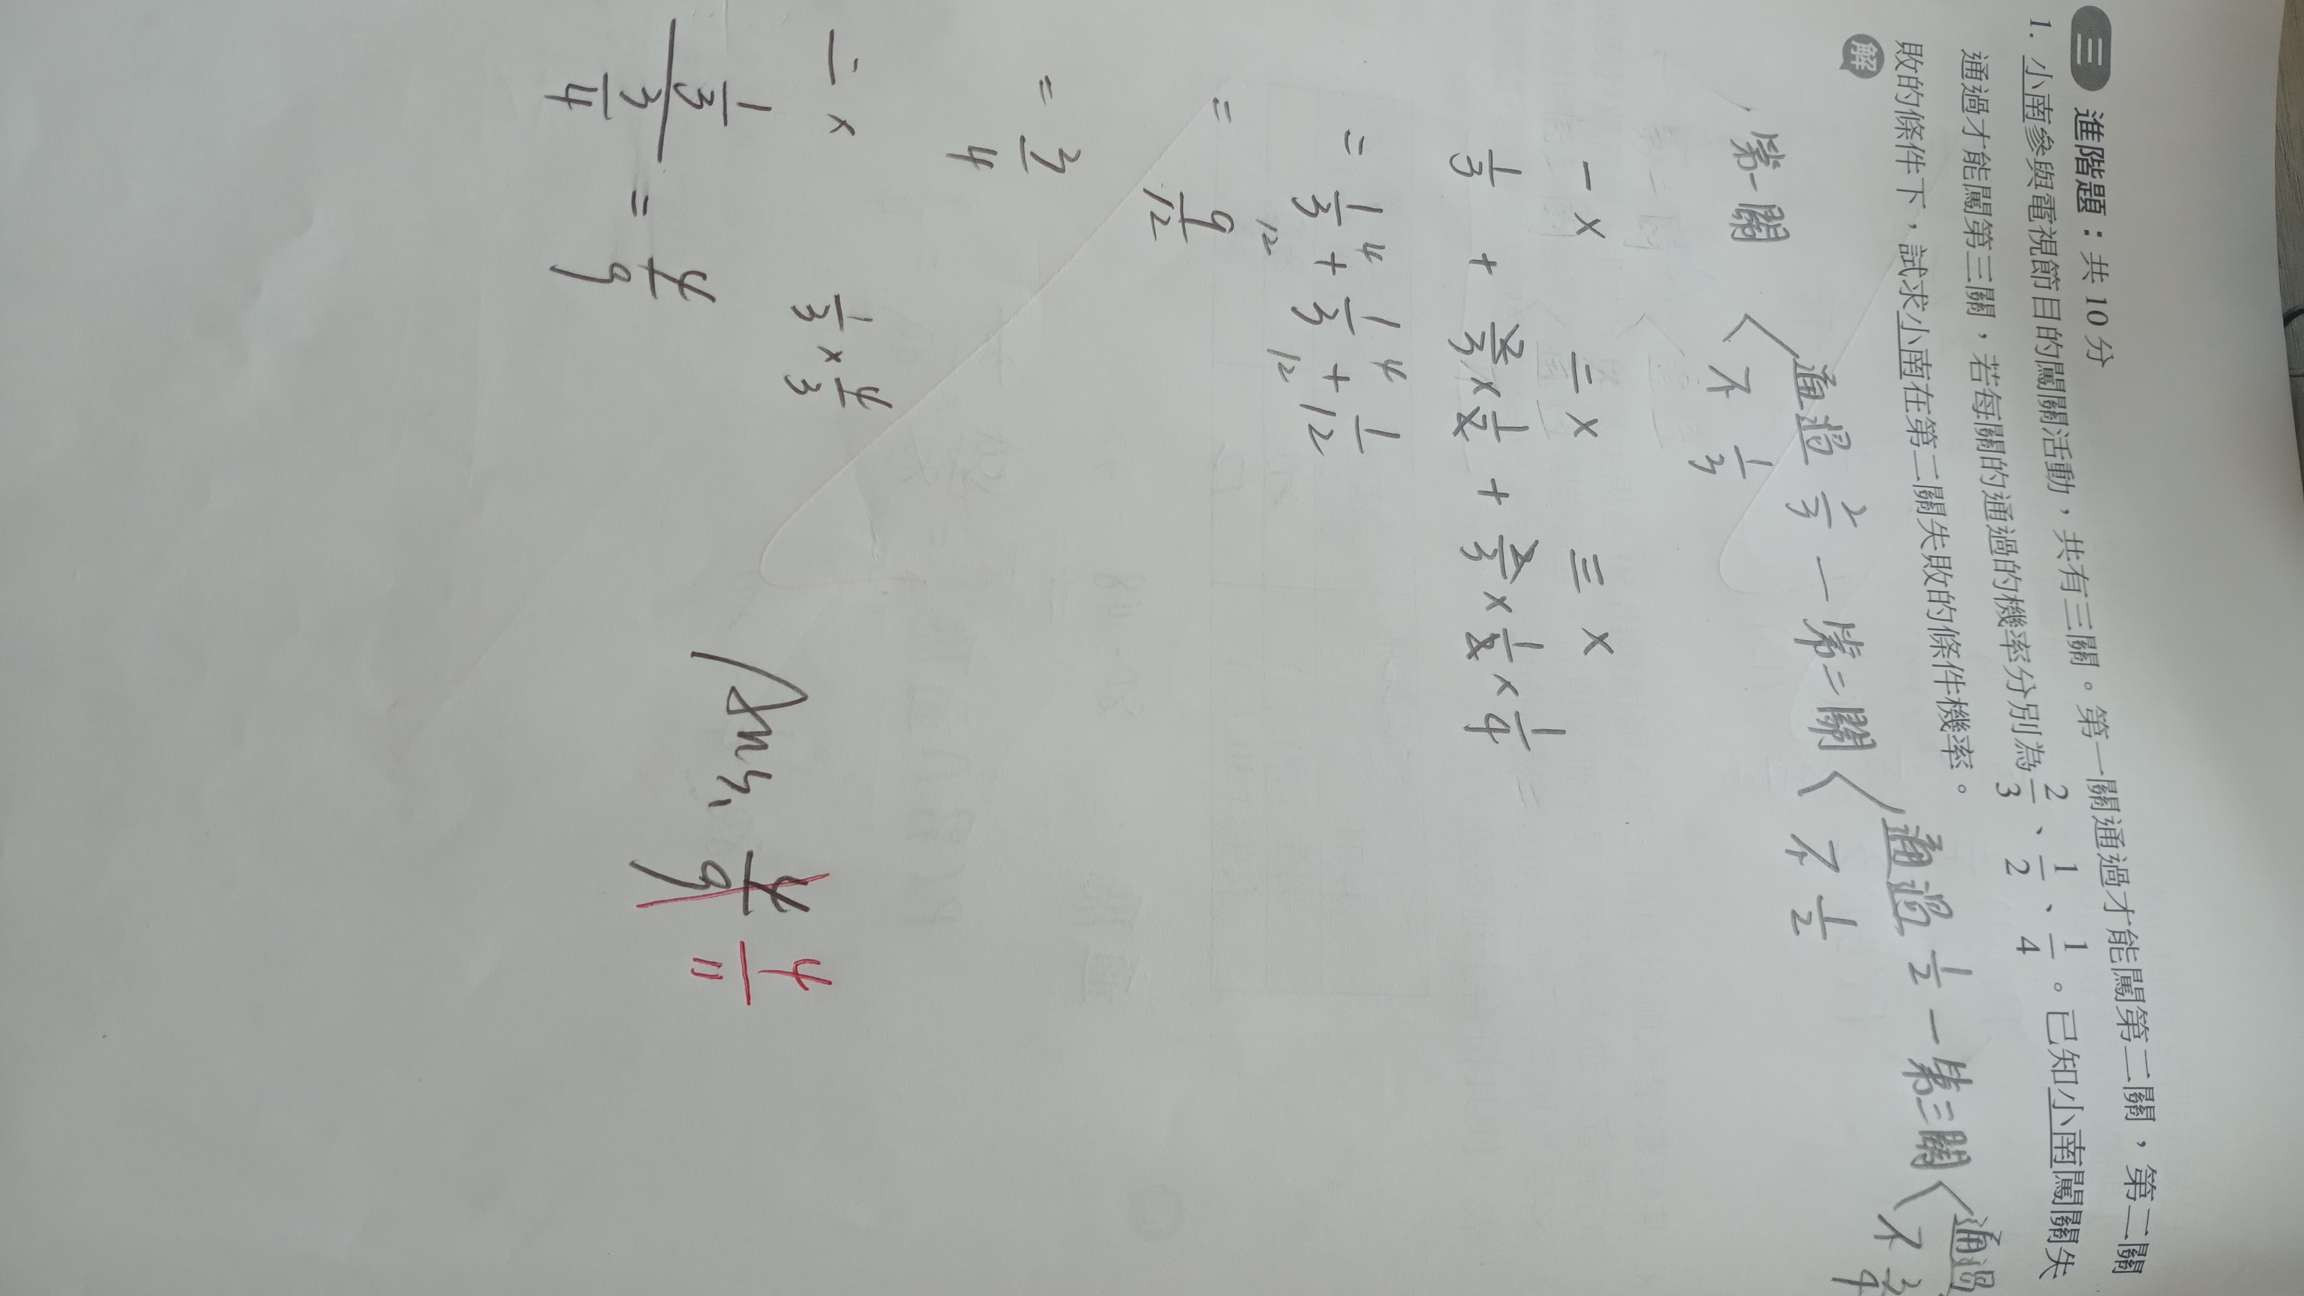 三 進階題：共 10 分
1. 小南參與電視節目的闖關活動，共有三關。第一關通過才能闖第二關，第二關
通過才能闖第三關，若每關的通過的機率分別為 2/3、1/2、1/4。已知小南闖關失
敗的條件下，試求小南在第二關失敗的條件機率。
解
第一關 < 通過 2/3 — 第二關 < 通過 1/2 — 第三關 < 通過
不 1/3 不 1/2 不 3/4
一 × 二 × 三 ×
1/3 + 2/3 × 1/2 + 2/3 × 1/2 × 1/4 =
= 1/3 + 1/3 + 1/12
4 4
12 12
= 9/12
= 3/4
二 × 1/3 × 4/3
1/3 / 3/4 = 4/9
Ans, 4/9 4/11